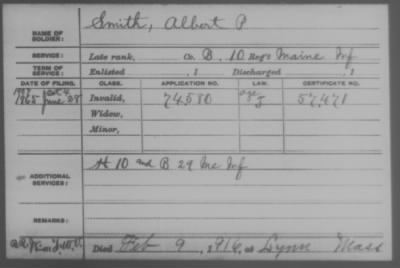 NAME OF SOLDIER: Smith, Albert P
SERVICE: Late rank, Co. B, 10 Reg't Maine Inf
TERM OF SERVICE: Enlisted , 1 Discharged , 1
DATE OF FILING. CLASS. APPLICATION NO. LAW. CERTIFICATE NO.
1865 June 28 Invalid, 74580 57,471
Widow,
Minor,
ADDITIONAL SERVICES: H 10 and B 29 Me Inf
REMARKS:
Died Feb 9, 1916, at Lynn Mass